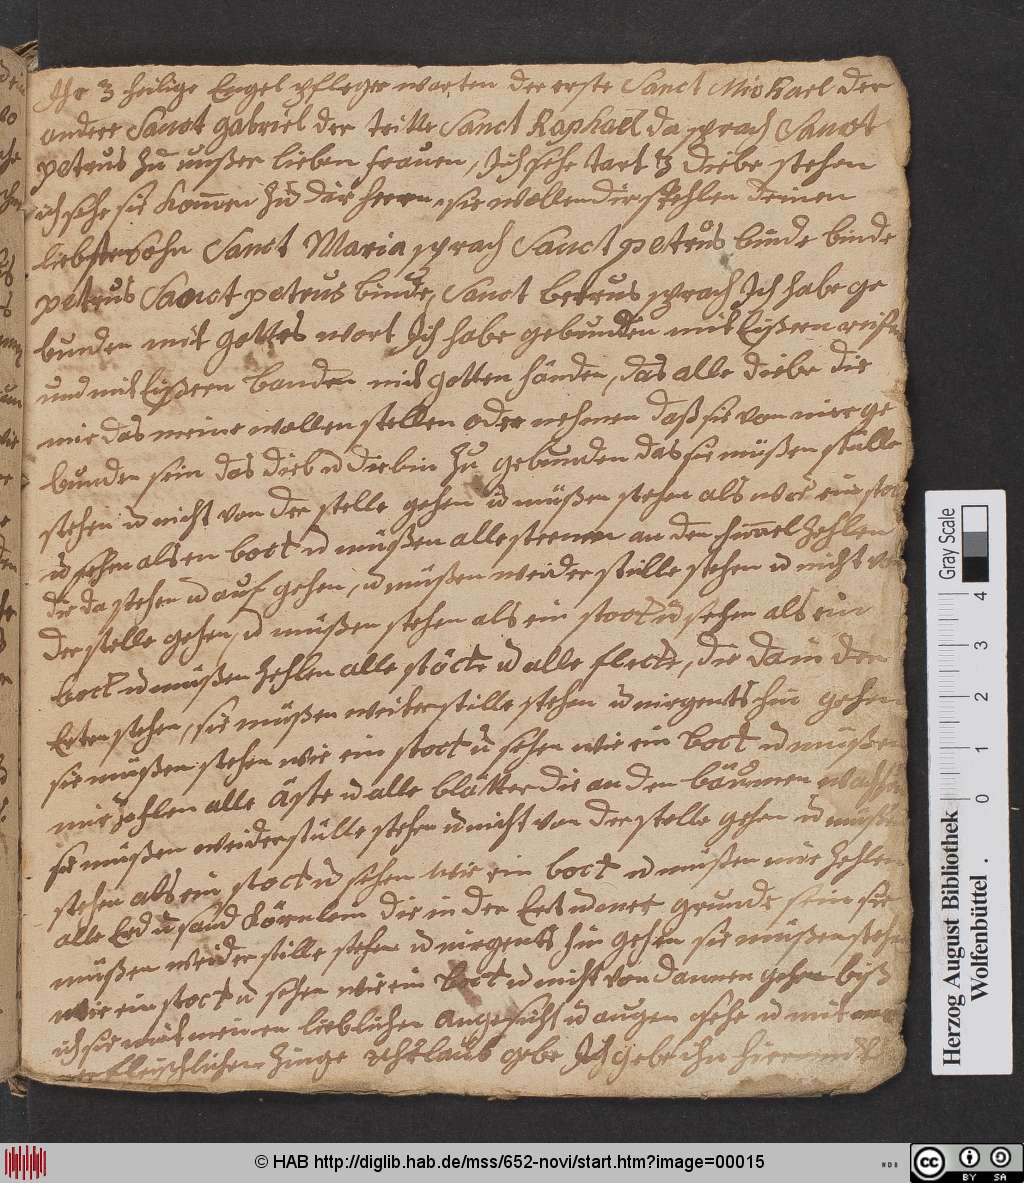 Ihr 3 heilige Engel pfleger warten der erste Sanct Michael der
andere Sanct gabriel der tritte Sanct Raphaell da sprach Sanct
petrus zu unßer lieben frauen, Ich sehe dort 3 diebe stehen
ich sehe sie kommen zu dir herrn, sie wollen dir stehlen deinen
liebsten sohn Sanct Maria sprach Sanct petrus binde binde
petrus Sanct petrus binde, Sanct betrus sprach Ich habe ge
bunden mit gottes wort Ich habe gebunden mit Eyßern
und mit Eyßern banden mit gotten händen, das alle diebe die
mir das meine wollen stellen oder nehmen daß sie von mir ge
bunden sein das dieb u diebin zu gebunden das sie müßen stille
stehen u nicht von der stelle gehen u müßen stehen als wie ein stoc
u sehen als en boct u müßen alle sternen an den himel zehlen
die da stehen u auf gehen, u müßen weider stille stehen u nicht von
der stelle gehen, u müßen stehen als ein stoct u sehen als ein
boct u müßen zehlen alle stöcte u alle flecte, die da in der
Erten stehen, sie müßen weiter stille stehen u nirgents hin gehen
sie müßen stehen wie ein stoct u sehen wie ein boct u müßen
mir zehlen alle äste u alle blätter die an den bäumen wachsen
sie müßen weider stille stehen u nicht von der stelle gehen u müßen
stehen als ein stoct u sehen wie ein boct u müßen mir zehlen
alle Erd u sand körnlein die in der Ert u meer grunde sein sie
müßen weider stille stehen u nirgents hin gehen sie müßen stehn
wie ein stoct u sehen wie ein boct u nicht von dannen gehen biß
ich sie mit meinen lieblichen angesicht u augen sehe u mit
fleischlichen zunge uhrlaub gebe, Ich gebe ihn hiermit
Gray Scale
0 1 2 3 4
Herzog August Bibliothek
Wolfenbüttel
© HAB http://diglib.hab.de/mss/652-novi/start.htm?image=00015
cc BY SA